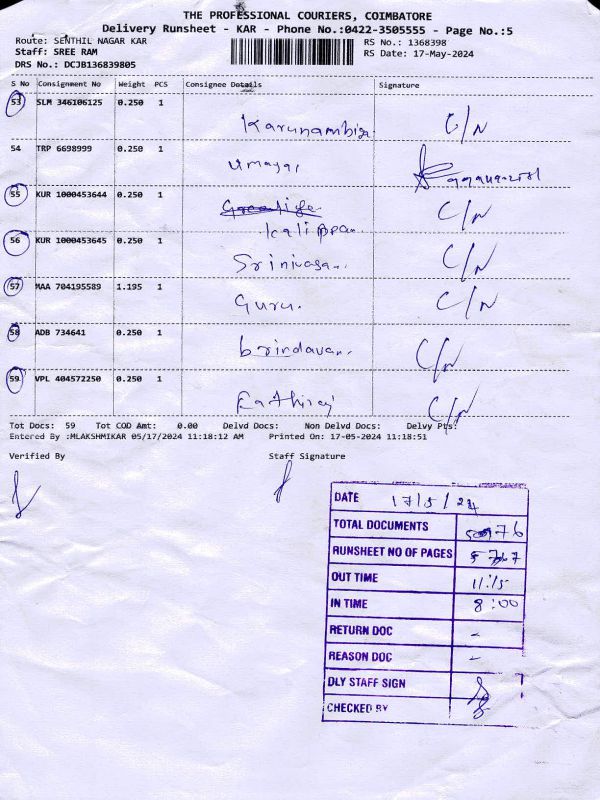 THE PROFESSIONAL COURIERS, COIMBATORE
Delivery Runsheet - KAR - Phone No.:0422-3505555 - Page No.:5
Route: SENTHIL NAGAR KAR RS No.: 1368398
Staff: SREE RAM RS Date: 17-May-2024
DRS No.: DCJB136839805
S No Consignment No Weight PCS Consignee Details Signature
53 SLM 346106125 0.250 1 Karunambiga C/N
54 TRP 6698999 0.250 1 Umayal
55 KUR 1000453644 0.250 1 C/N
Kalippan
56 KUR 1000453645 0.250 1 Srinivasan C/N
57 MAA 704195589 1.195 1 Guru. C/N
58 ADB 734641 0.250 1 brindavan. C/N
59 VPL 404572250 0.250 1 C/N
Tot Docs: 59 Tot COD Amt: 0.00 Delvd Docs: Non Delvd Docs: Delvy Pts:
Entered By :MLAKSHMIKAR 05/17/2024 11:18:12 AM Printed On: 17-05-2024 11:18:51
Verified By Staff Signature
DATE 17/5/24
TOTAL DOCUMENTS 76
RUNSHEET NO OF PAGES 7
OUT TIME 11:15
IN TIME 8:00
RETURN DOC -
REASON DOC -
DLY STAFF SIGN
CHECKED BY